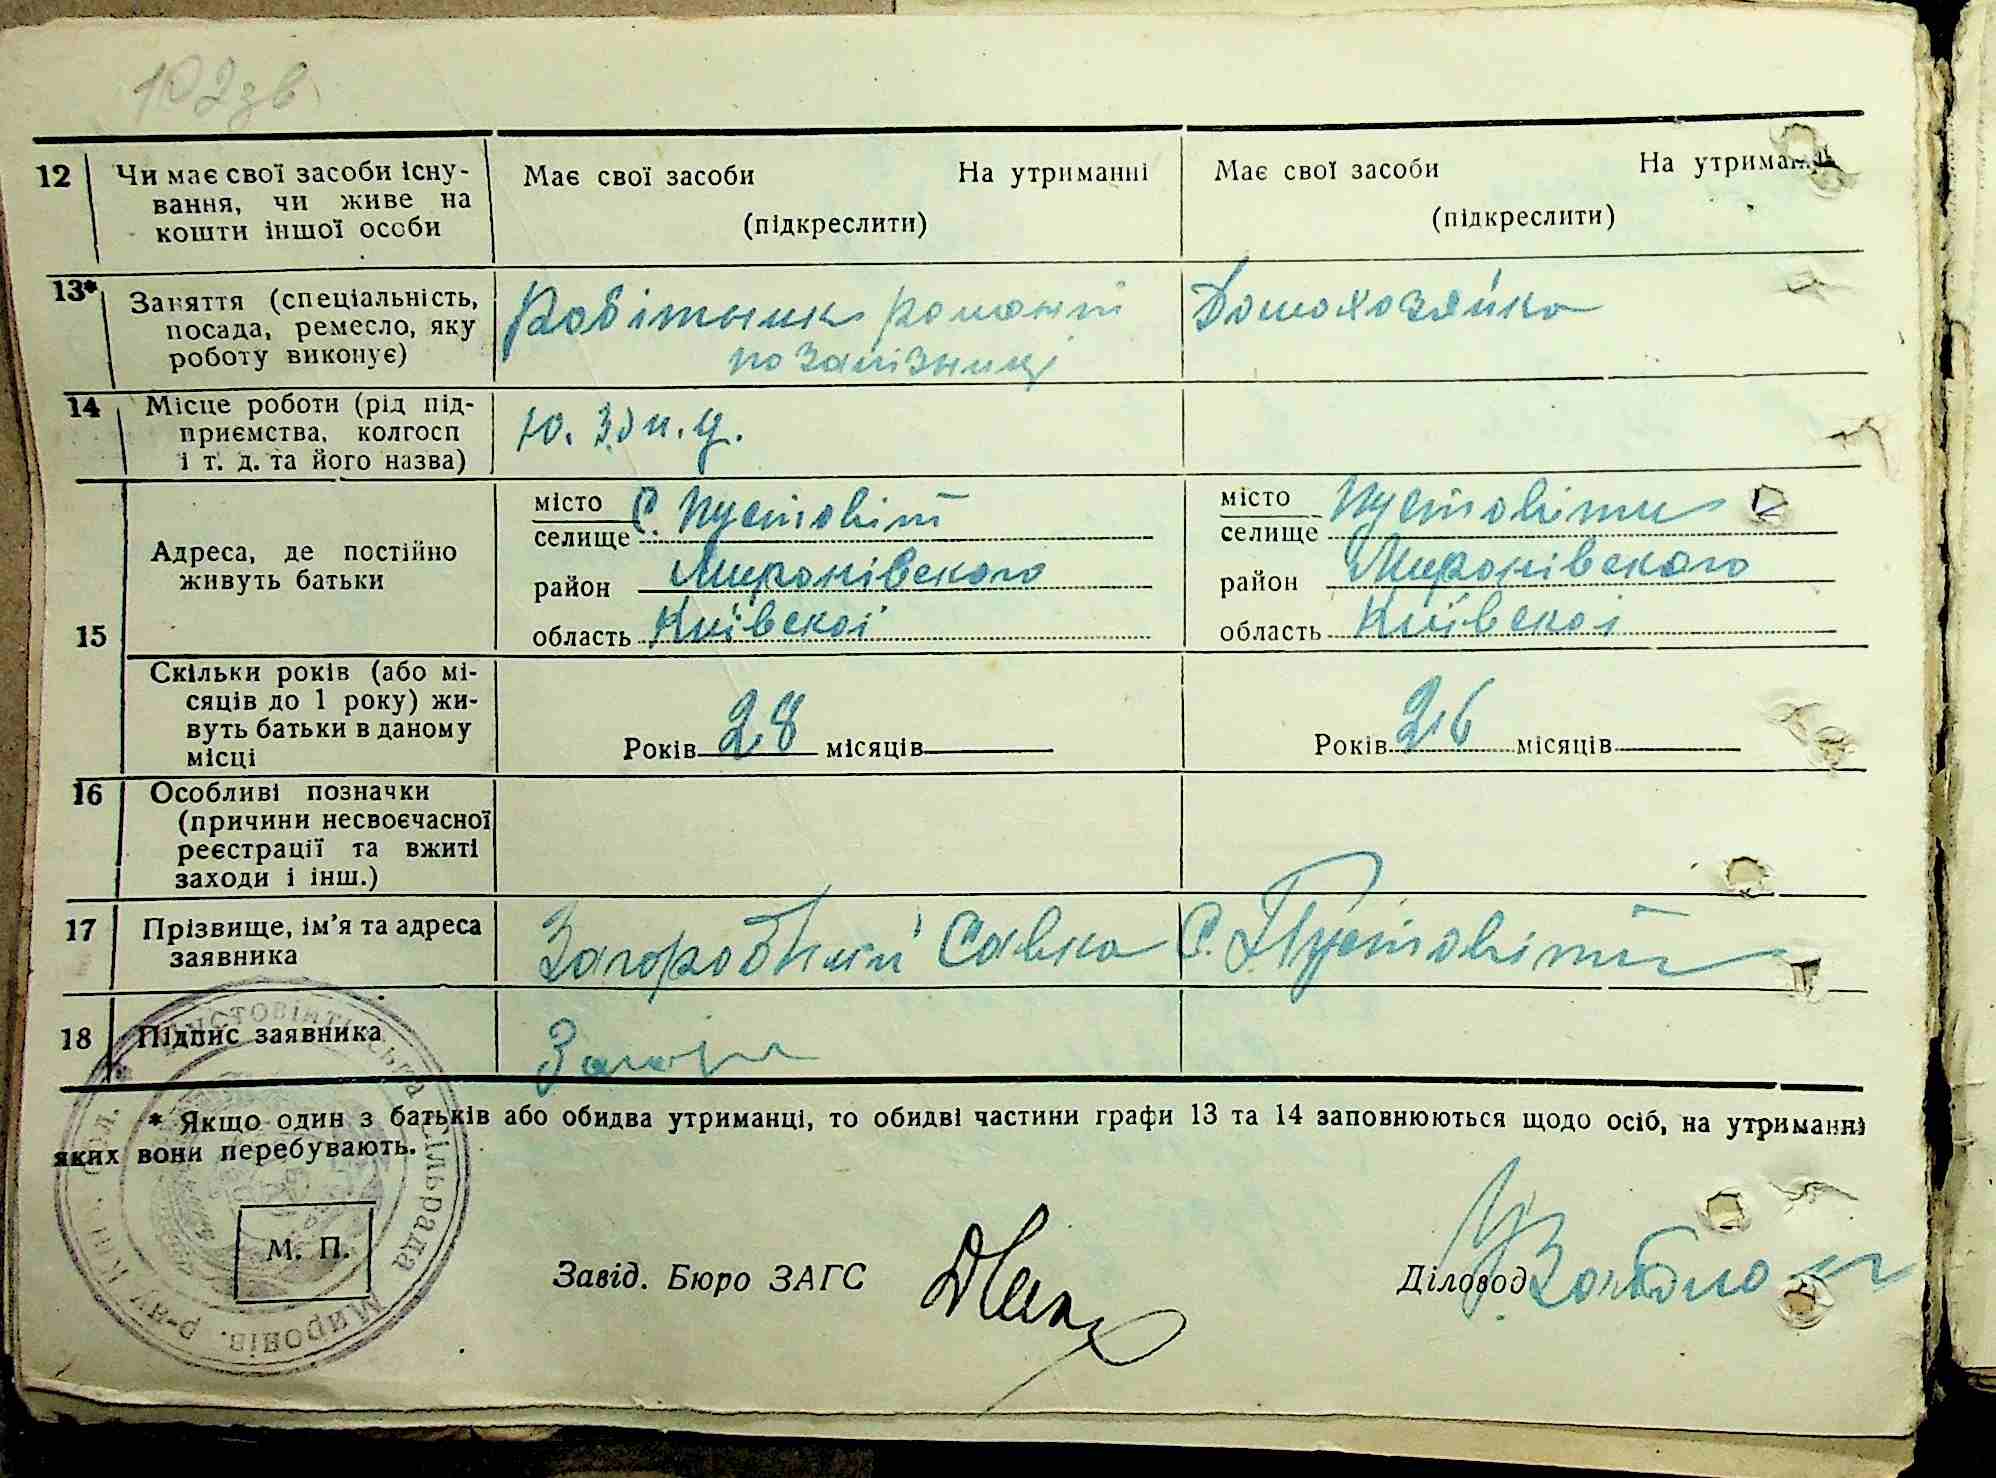 102зв
12 Чи має свої засоби існу-
вання, чи живе на
кошти іншої особи
Має свої засоби На утриманні
(підкреслити)
Має свої засоби На утриманні
(підкреслити)
13* Заняття (спеціальність,
посада, ремесло, яку
роботу виконує)
Робітник ремонт
по залізниці
Домохозяйка
14 Місце роботи (рід під-
приємства, колгосп
і т. д. та його назва)
Ю. З.
15 Адреса, де постійно
живуть батьки
місто С. Пустовіт
селище
район Миронівского
область Київскої
місто Пустовіти
селище
район Миронівского
область Київскої
Скільки років (або мі-
сяців до 1 року) жи-
вуть батьки в даному
місці
Років 28 місяців
Років 26 місяців
16 Особливі позначки
(причини несвоєчасної
реєстрації та вжиті
заходи і інш.)
17 Прізвище, ім'я та адреса
заявника
Загородний Савка С. Пустовіти
18 Підпис заявника
* Якщо один з батьків або обидва утриманці, то обидві частини графи 13 та 14 заповнюються щодо осіб, на утриманні
яких вони перебувають.
М. П.
Завід. Бюро ЗАГС
Діловод
Пустовітська сільрада Миронів. р-ну